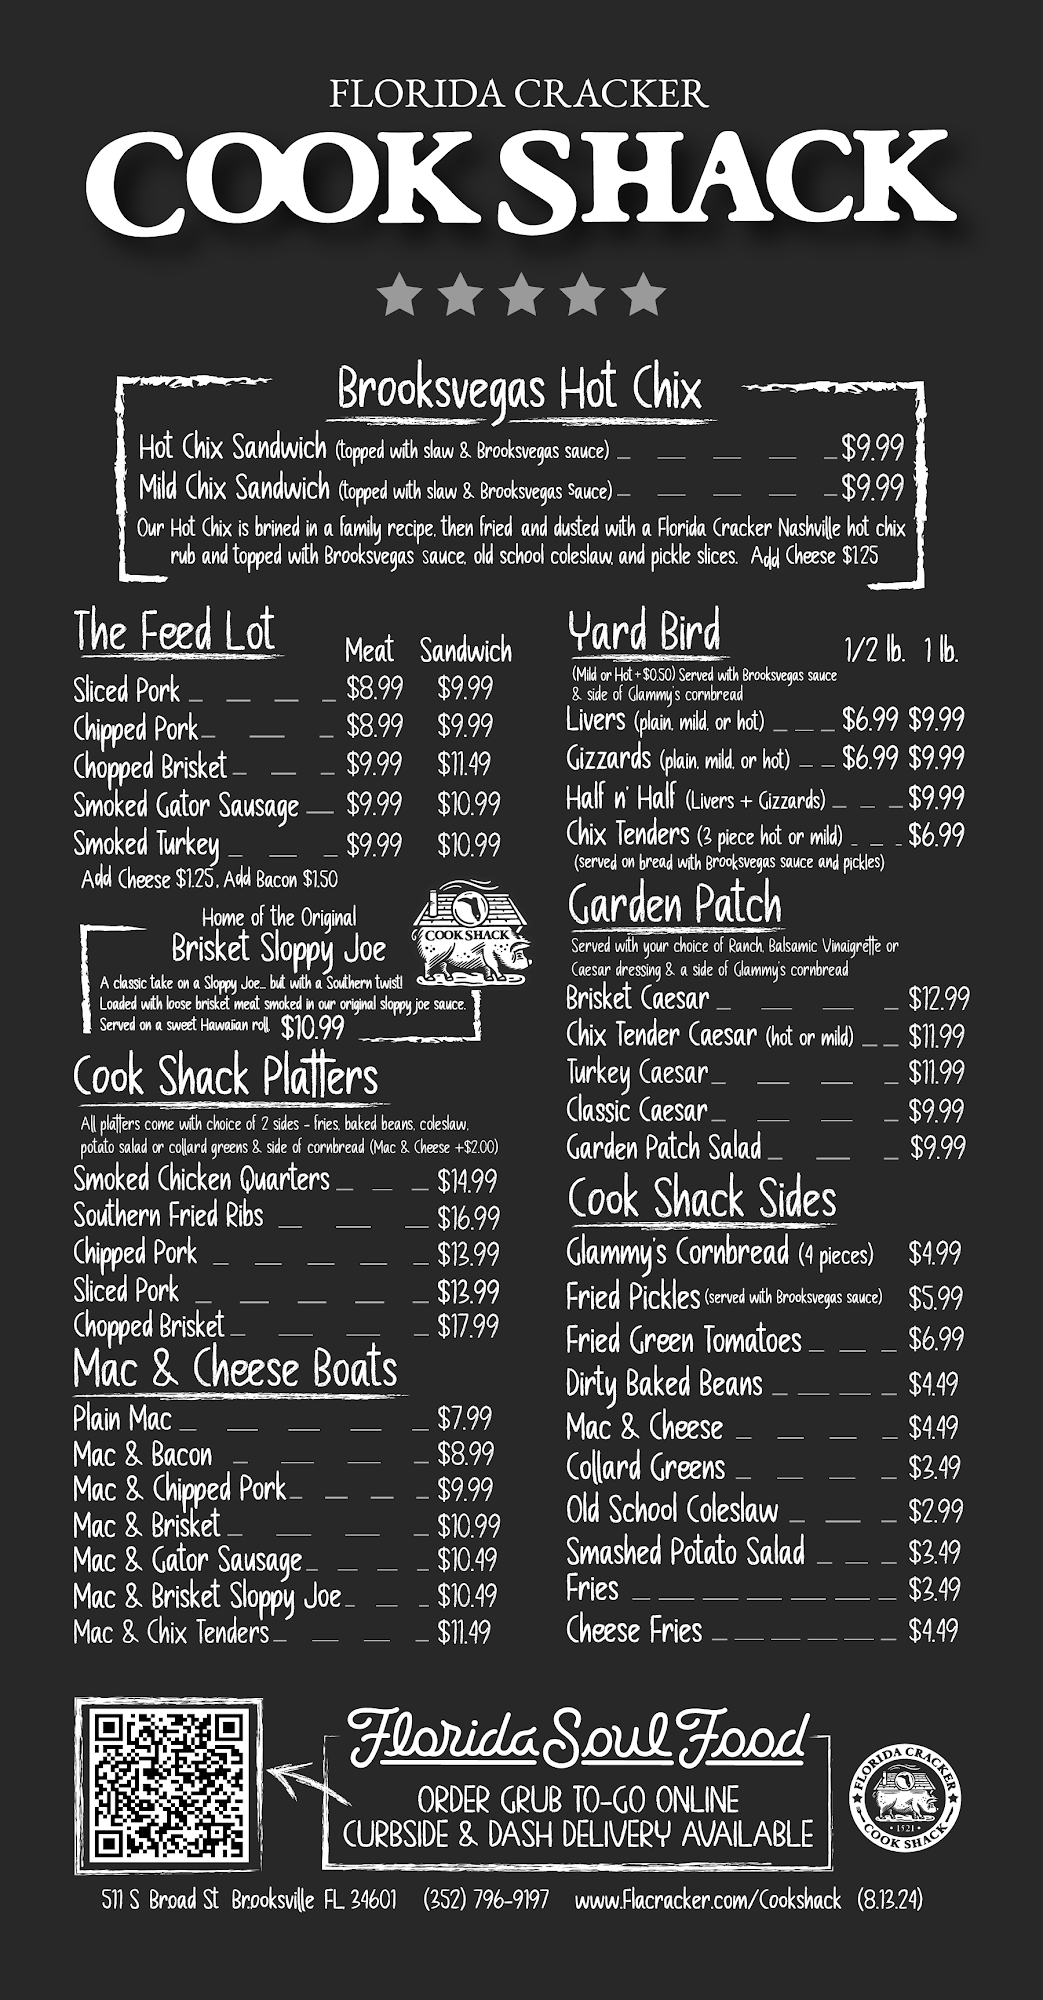 FLORIDA CRACKER
COOK SHACK
Brooksvegas Hot Chix
Hot Chix Sandwich (topped with slaw & Brooksvegas sauce) $9.99
Mild Chix Sandwich (topped with slaw & Brooksvegas sauce) $9.99
Our Hot Chix is brined in a family recipe, then fried and dusted with a Florida Cracker Nashville hot chix
rub and topped with Brooksvegas sauce, old school coleslaw, and pickle slices. Add Cheese $1.25
The Feed Lot
Meat Sandwich
Sliced Pork $8.99 $9.99
Chipped Pork $8.99 $9.99
Chopped Brisket $9.99 $11.49
Smoked Gator Sausage $9.99 $10.99
Smoked Turkey $9.99 $10.99
Add Cheese $1.25, Add Bacon $1.50
Home of the Original
Brisket Sloppy Joe
COOK SHACK
A classic take on a Sloppy Joe... but with a Southern twist!
Loaded with loose brisket meat smoked in our original sloppy joe sauce.
Served on a sweet Hawaiian roll. $10.99
Cook Shack Platters
All platters come with choice of 2 sides - fries, baked beans, coleslaw,
potato salad or collard greens & side of cornbread (Mac & Cheese +$2.00)
Smoked Chicken Quarters $14.99
Southern Fried Ribs $16.99
Chipped Pork $13.99
Sliced Pork $13.99
Chopped Brisket $17.99
Mac & Cheese Boats
Plain Mac $7.99
Mac & Bacon $8.99
Mac & Chipped Pork $9.99
Mac & Brisket $10.99
Mac & Gator Sausage $10.49
Mac & Brisket Sloppy Joe $10.49
Mac & Chix Tenders $11.49
Yard Bird
1/2 lb. 1 lb.
(Mild or Hot + $0.50) Served with Brooksvegas sauce
& side of Glammy's cornbread
Livers (plain, mild, or hot) $6.99 $9.99
Gizzards (plain, mild, or hot) $6.99 $9.99
Half n' Half (Livers + Gizzards) $9.99
Chix Tenders (3 piece hot or mild) $6.99
(served on bread with Brooksvegas sauce and pickles)
Garden Patch
Served with your choice of Ranch, Balsamic Vinaigrette or
Caesar dressing & a side of Glammy's cornbread
Brisket Caesar $12.99
Chix Tender Caesar (hot or mild) $11.99
Turkey Caesar $11.99
Classic Caesar $9.99
Garden Patch Salad $9.99
Cook Shack Sides
Glammy's Cornbread (4 pieces) $4.99
Fried Pickles (served with Brooksvegas sauce) $5.99
Fried Green Tomatoes $6.99
Dirty Baked Beans $4.49
Mac & Cheese $4.49
Collard Greens $3.49
Old School Coleslaw $2.99
Smashed Potato Salad $3.49
Fries $3.49
Cheese Fries $4.49
Florida Soul Food
ORDER GRUB TO-GO ONLINE
CURBSIDE & DASH DELIVERY AVAILABLE
FLORIDA CRACKER
• 1521 •
COOK SHACK
511 S Broad St Brooksville FL 34601 (352) 796-9197 www.Flacracker.com/Cookshack (8.13.24)